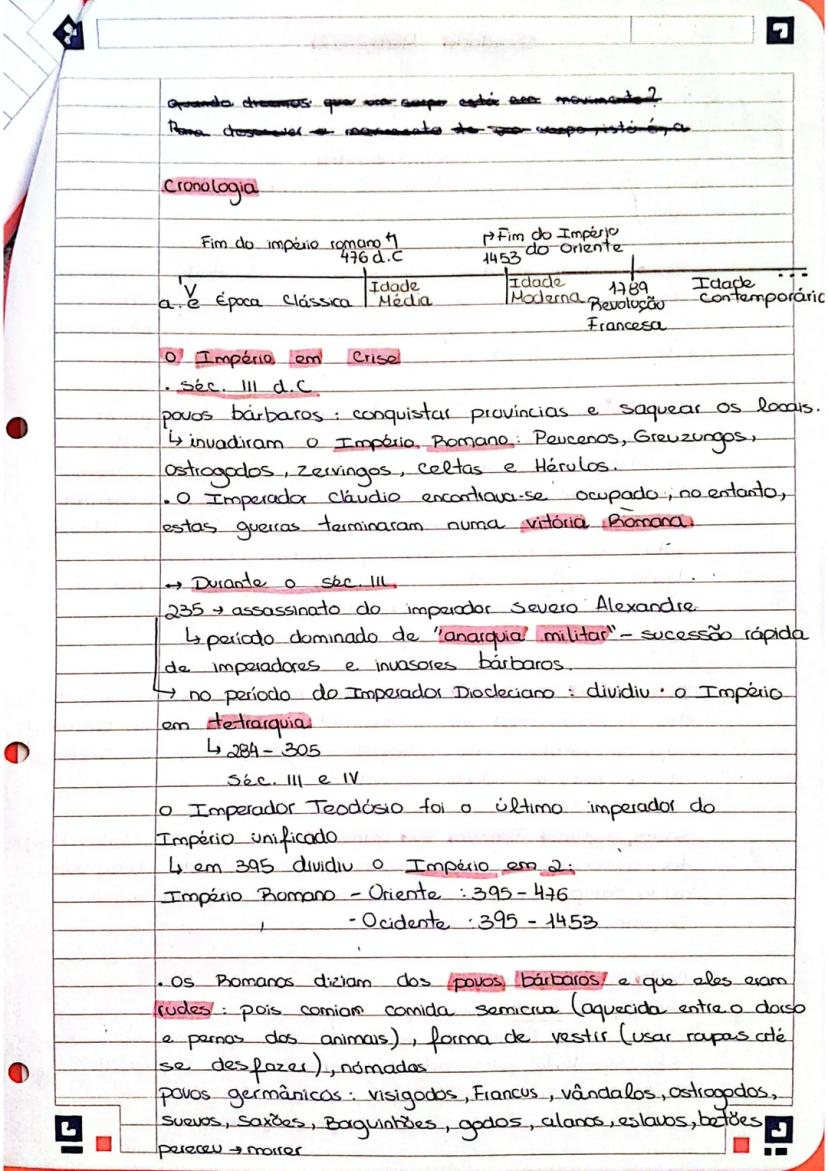 Quando dizemos que um corpo está em movimento?
Para descrever o movimento de um corpo, isto é, a
Cronologia
Fim do império romano
476 d.C
Fim do Império
do Oriente
1453
a.c Época Clássica
Idade
Média
Idade
Moderna
1789
Revolução
Francesa
Idade
Contemporânic
...
O Império em Crise
. séc. III d.C
povos bárbaros : conquistar províncias e saquear os locais.
↳ invadiram o Império Romano : Peucenos, Greuzungos,
Ostrogodos, Zervingos, Celtas e Hérulos.
. O Imperador Cláudio encontrava-se ocupado ; no entanto,
estas guerras terminaram numa vitória Romana.
→ Durante o séc. III
235 → assassinato do imperador Severo Alexandre
↳ período dominado de "anarquia militar" - sucessão rápida
de imperadores e invasores bárbaros.
→ no período do Imperador Diocleciano : dividiu o Império
em tetrarquia
↳ 284 - 305
séc. III e IV
O Imperador Teodósio foi o último imperador do
Império unificado
↳ em 395 dividiu o Império em 2:
Império Romano - Oriente : 395 - 476
- Ocidente : 395 - 1453
. Os Romanos diziam dos povos bárbaros e que eles eram
rudes : pois comiam comida semicrua (aquecida entre o dorso
e pernas dos animais), forma de vestir (usar roupas até
se desfazer), nómadas
povos germânicos : visigodos, Francus, vândalos, ostrogodos,
suevos, saxões, Barguinhões, godos, alanos, eslavos, betões
pereceu → morrer